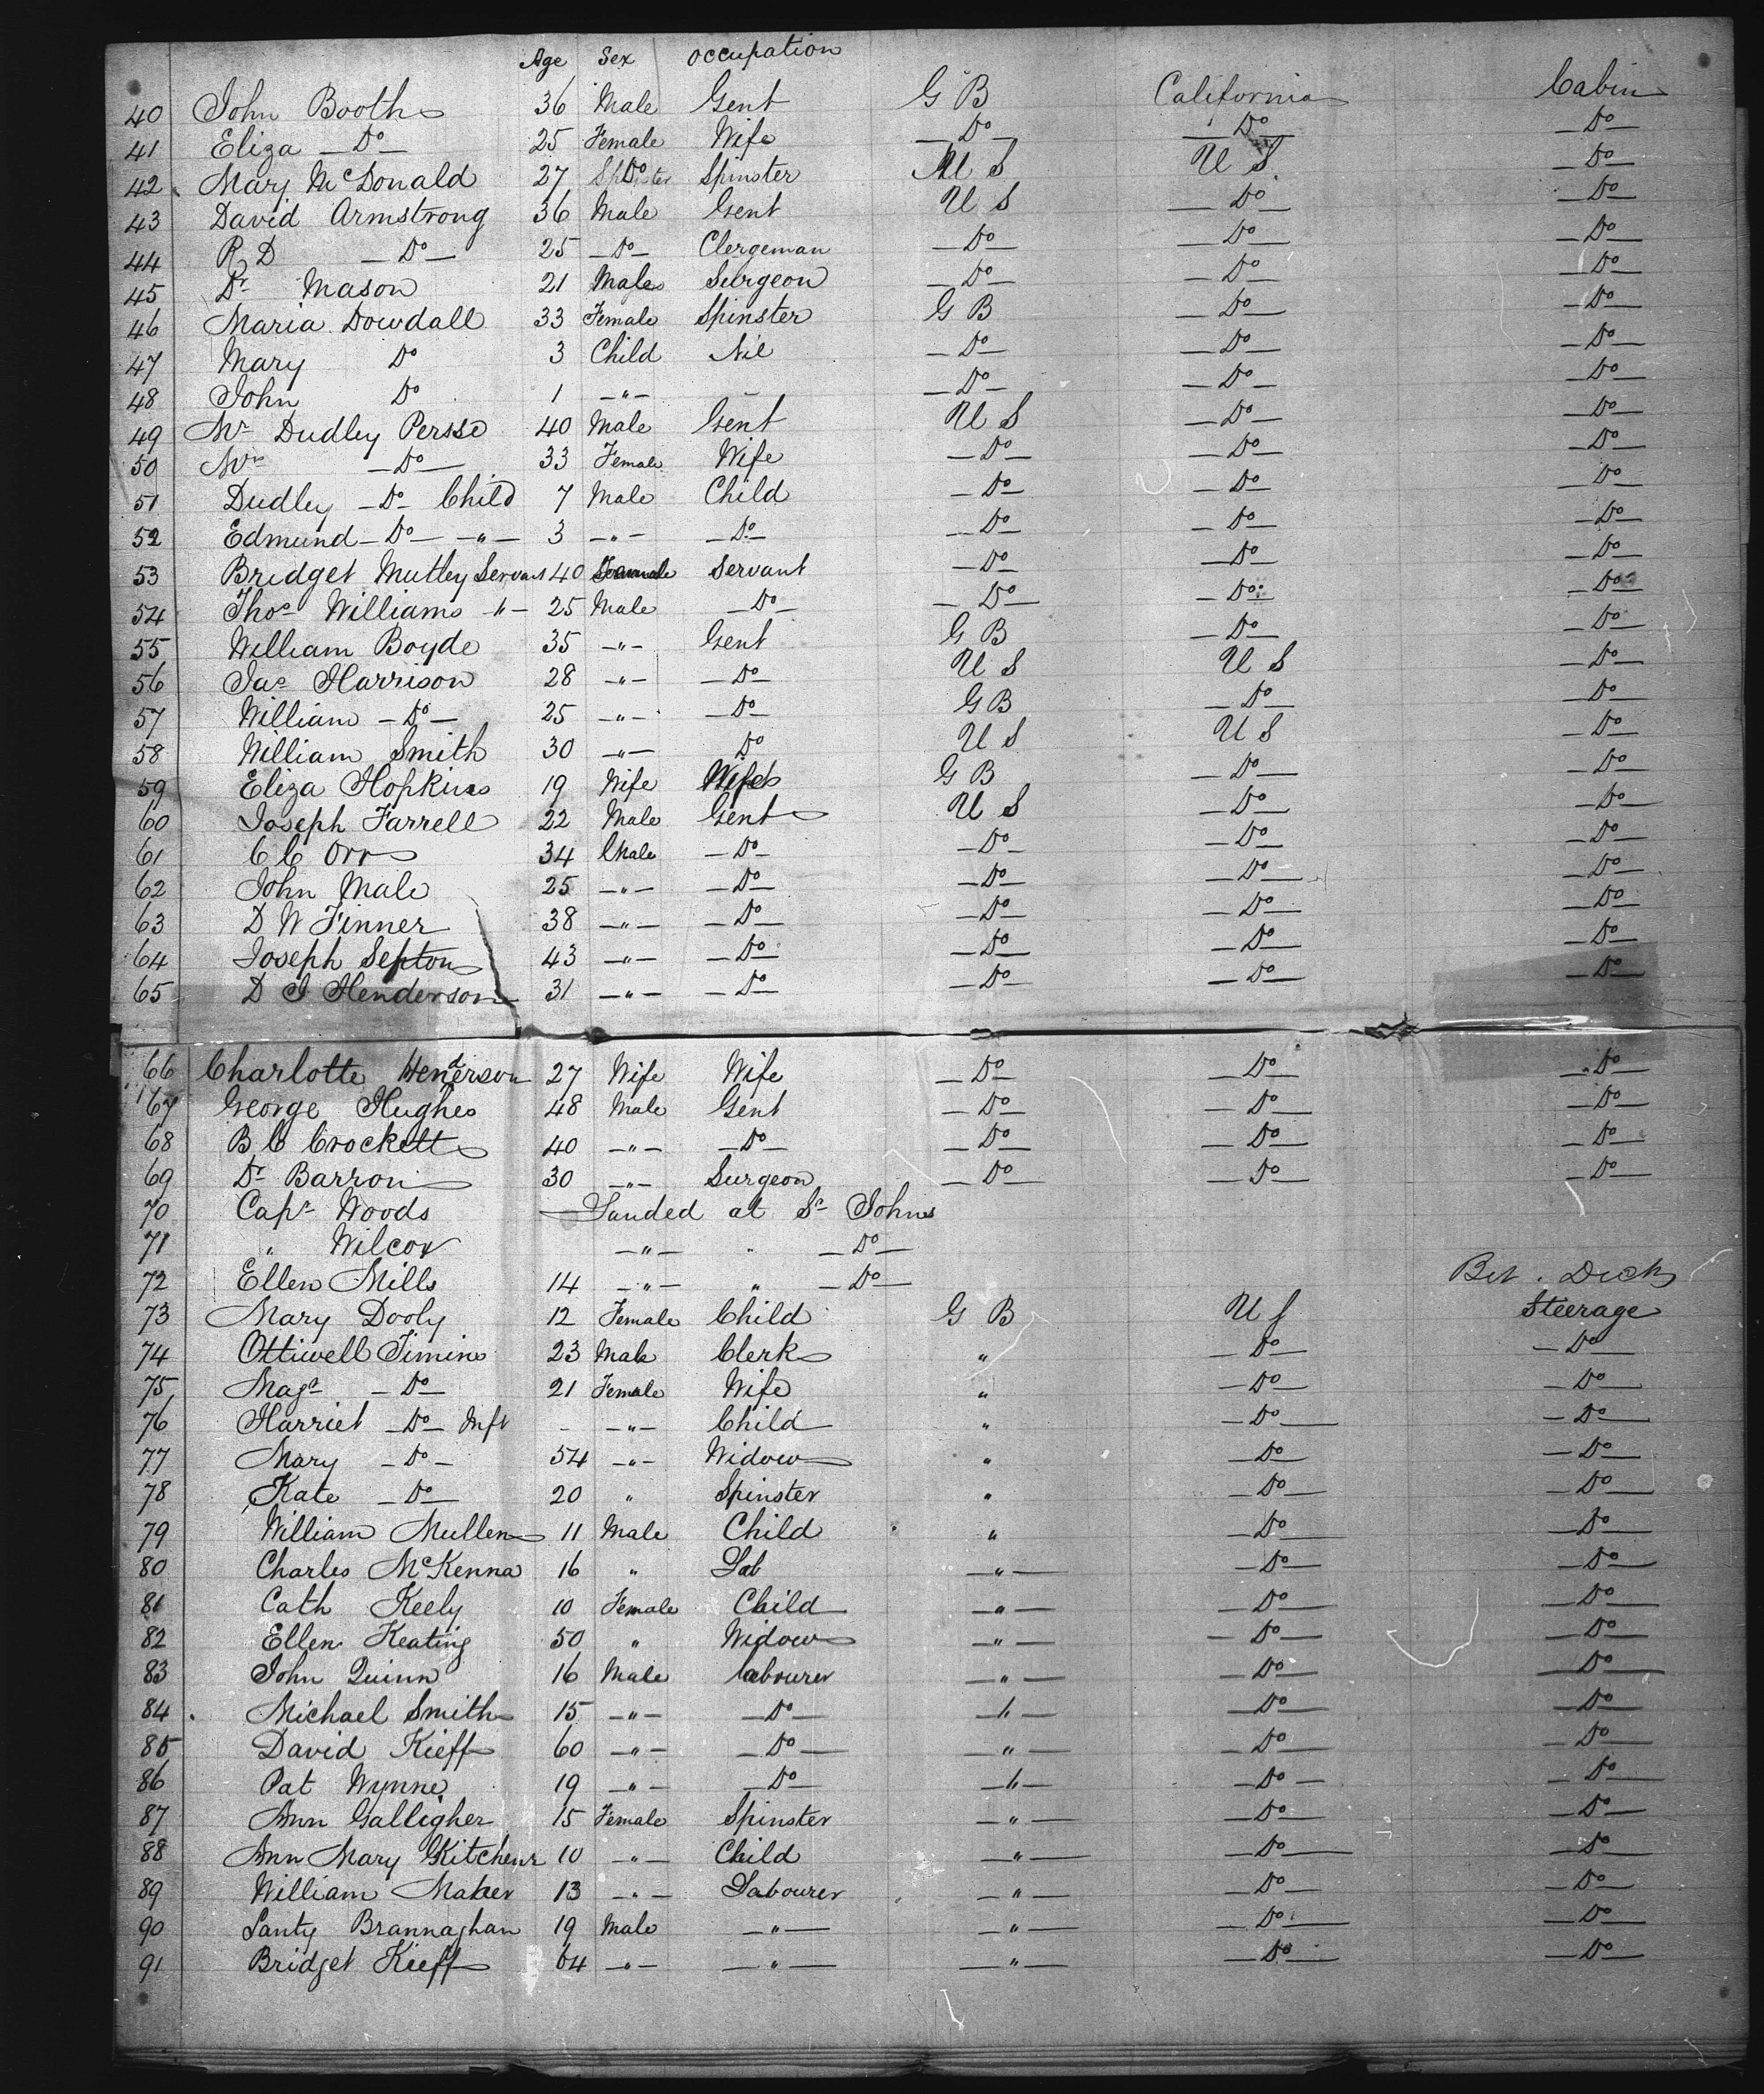 Age Sex Occupation
40 John Booth 36 Male Gent G B California Cabin
41 Eliza — Do — 25 Female Wife — Do — — Do — — Do —
42 Mary McDonald 27 Do Spinster U S U S — Do —
43 David Armstrong 36 Male Gent U S — Do — — Do —
44 R D — Do — 25 — Do — Clergeman — Do — — Do — — Do —
45 Dr Mason 21 Male Surgeon — Do — — Do — — Do —
46 Maria Dowdall 33 Female Spinster G B — Do — — Do —
47 Mary Do 3 Child Nil — Do — — Do — — Do —
48 John Do 1 — " — — — Do — — Do — — Do —
49 Mr Dudley Persse 40 Male Gent U S — Do — — Do —
50 Mrs — Do — 33 Female Wife — Do — — Do — — Do —
51 Dudley — Do — Child 7 Male Child — Do — — Do — — Do —
52 Edmund — Do — — " — 3 — " — — Do — — Do — — Do — — Do —
53 Bridget Mutley Servant 40 Female Servant — Do — — Do — — Do —
54 Thos Williams — " — 25 Male — Do — — Do — — Do — — Do —
55 William Boyde 35 — " — Gent G B — Do — — Do —
56 Jas Harrison 28 — " — — Do — U S U S — Do —
57 William — Do — 25 — " — — Do — G B — Do — — Do —
58 William Smith 30 — " — Do U S U S — Do —
59 Eliza Hopkins 19 Wife Wife G B — Do — — Do —
60 Joseph Farrell 22 Male Gent U S — Do — — Do —
61 C C Orr 34 Male — Do — — Do — — Do — — Do —
62 John Male 25 — " — — Do — — Do — — Do — — Do —
63 D W Finner 38 — " — — Do — — Do — — Do — — Do —
64 Joseph Septon 43 — " — — Do — — Do — — Do — — Do —
65 D J Henderson 31 — " — — Do — — Do — — Do — — Do —
66 Charlotte Henderson 27 Wife Wife — Do — — Do — — Do —
67 George Hughes 48 Male Gent — Do — — Do — — Do —
68 B C Crockett 40 — " — — Do — — Do — — Do — — Do —
69 Dr Barron 30 — " — Surgeon — Do — — Do — — Do —
70 Capt Woods — Landed at St Johns
71 " Wilcox — " — " — Do —
72 Ellen Mills 14 — " — " — Do — Bet. Deck
73 Mary Dooly 12 Female Child G B U S Steerage
74 Ottiwell Timins 23 Male Clerk " — Do — — Do —
75 Magt — Do — 21 Female Wife " — Do — — Do —
76 Harriet — Do — Inft - — " — Child " — Do — — Do —
77 Mary — Do — 54 — " — Widow " — Do — — Do —
78 Kate — Do — 20 " Spinster " — Do — — Do —
79 William Mullen 11 Male Child " — Do — — Do —
80 Charles McKenna 16 " Lab — " — — Do — — Do —
81 Cath Keely 10 Female Child — " — — Do — — Do —
82 Ellen Keating 50 " Widow — " — — Do — — Do —
83 John Quinn 16 Male labourer — " — — Do — — Do —
84 Michael Smith 15 — " — — Do — — " — — Do — — Do —
85 David Kieff 60 — " — — Do — — " — — Do — — Do —
86 Pat Wynne 19 — " — — Do — — " — — Do — — Do —
87 Ann Galligher 15 Female Spinster — " — — Do — — Do —
88 Ann Mary Kitchenr 10 — " — Child — " — — Do — — Do —
89 William Maher 13 — " — Labourer — " — — Do — — Do —
90 Santy Brannaghan 19 Male — " — — " — — Do — — Do —
91 Bridget Kieff 64 — " — — " — — " — — Do — — Do —